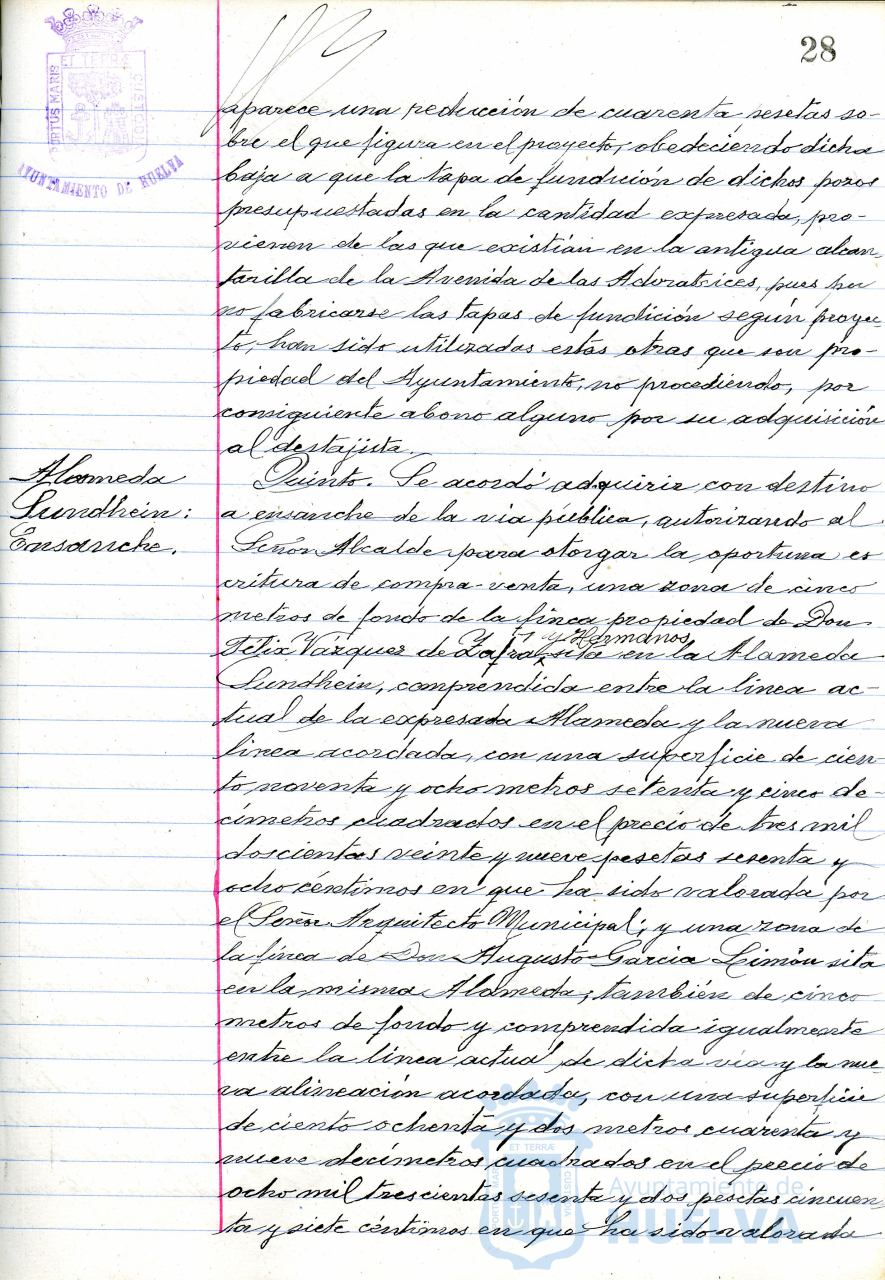 28
PORTUS MARIS ET TERRÆ CUSTODI
AYUNTAMIENTO DE HUELVA
aparece una reducción de cuarenta pesetas so-
bre el que figura en el proyecto, obedeciendo dicha
baja a que la tapa de fundición de dichos pozos
presupuestadas en la cantidad expresada, pro-
vienen de las que existían en la antigua alcan-
tarilla de la Avenida de las Adoratrices, pues por
no fabricarse las tapas de fundición según proyec-
to, han sido utilizadas estas otras que son pro-
piedad del Ayuntamiento, no procediendo, por
consiguiente abono alguno por su adquisición
al destajista.
Alameda
Sundhein:
Ensanche.
Quinto. Se acordó adquirir con destino
a ensanche de la via pública, autorizando al
Señor Alcalde para otorgar la oportuna es
critura de compra-venta, una zona de cinco
metros de fondo de la finca propiedad de Don
Felix Vázquez de Zafra y Hermanos, sita en la Alameda
Sundhein, comprendida entre la linea ac-
tual de la expresada Alameda y la nueva
linea acordada, con una superficie de cien-
to noventa y ocho metros setenta y cinco de-
címetros cuadrados en el precio de tres mil
doscientas veinte y nueve pesetas sesenta y
ocho céntimos en que ha sido valorada por
el Señor Arquitecto Municipal; y una zona de
la finca de Don Augusto Garcia Limón sita
en la misma Alameda, también de cinco
metros de fondo y comprendida igualmente
entre la linea actual de dicha via y la nue-
va alineación acordada, con una superficie
de ciento ochenta y dos metros cuarenta y
nueve decímetros cuadrados en el precio de
ocho mil trescientas sesenta y dos pesetas cincuen-
ta y siete céntimos en que ha sido valorada
Ayuntamiento de
HUELVA